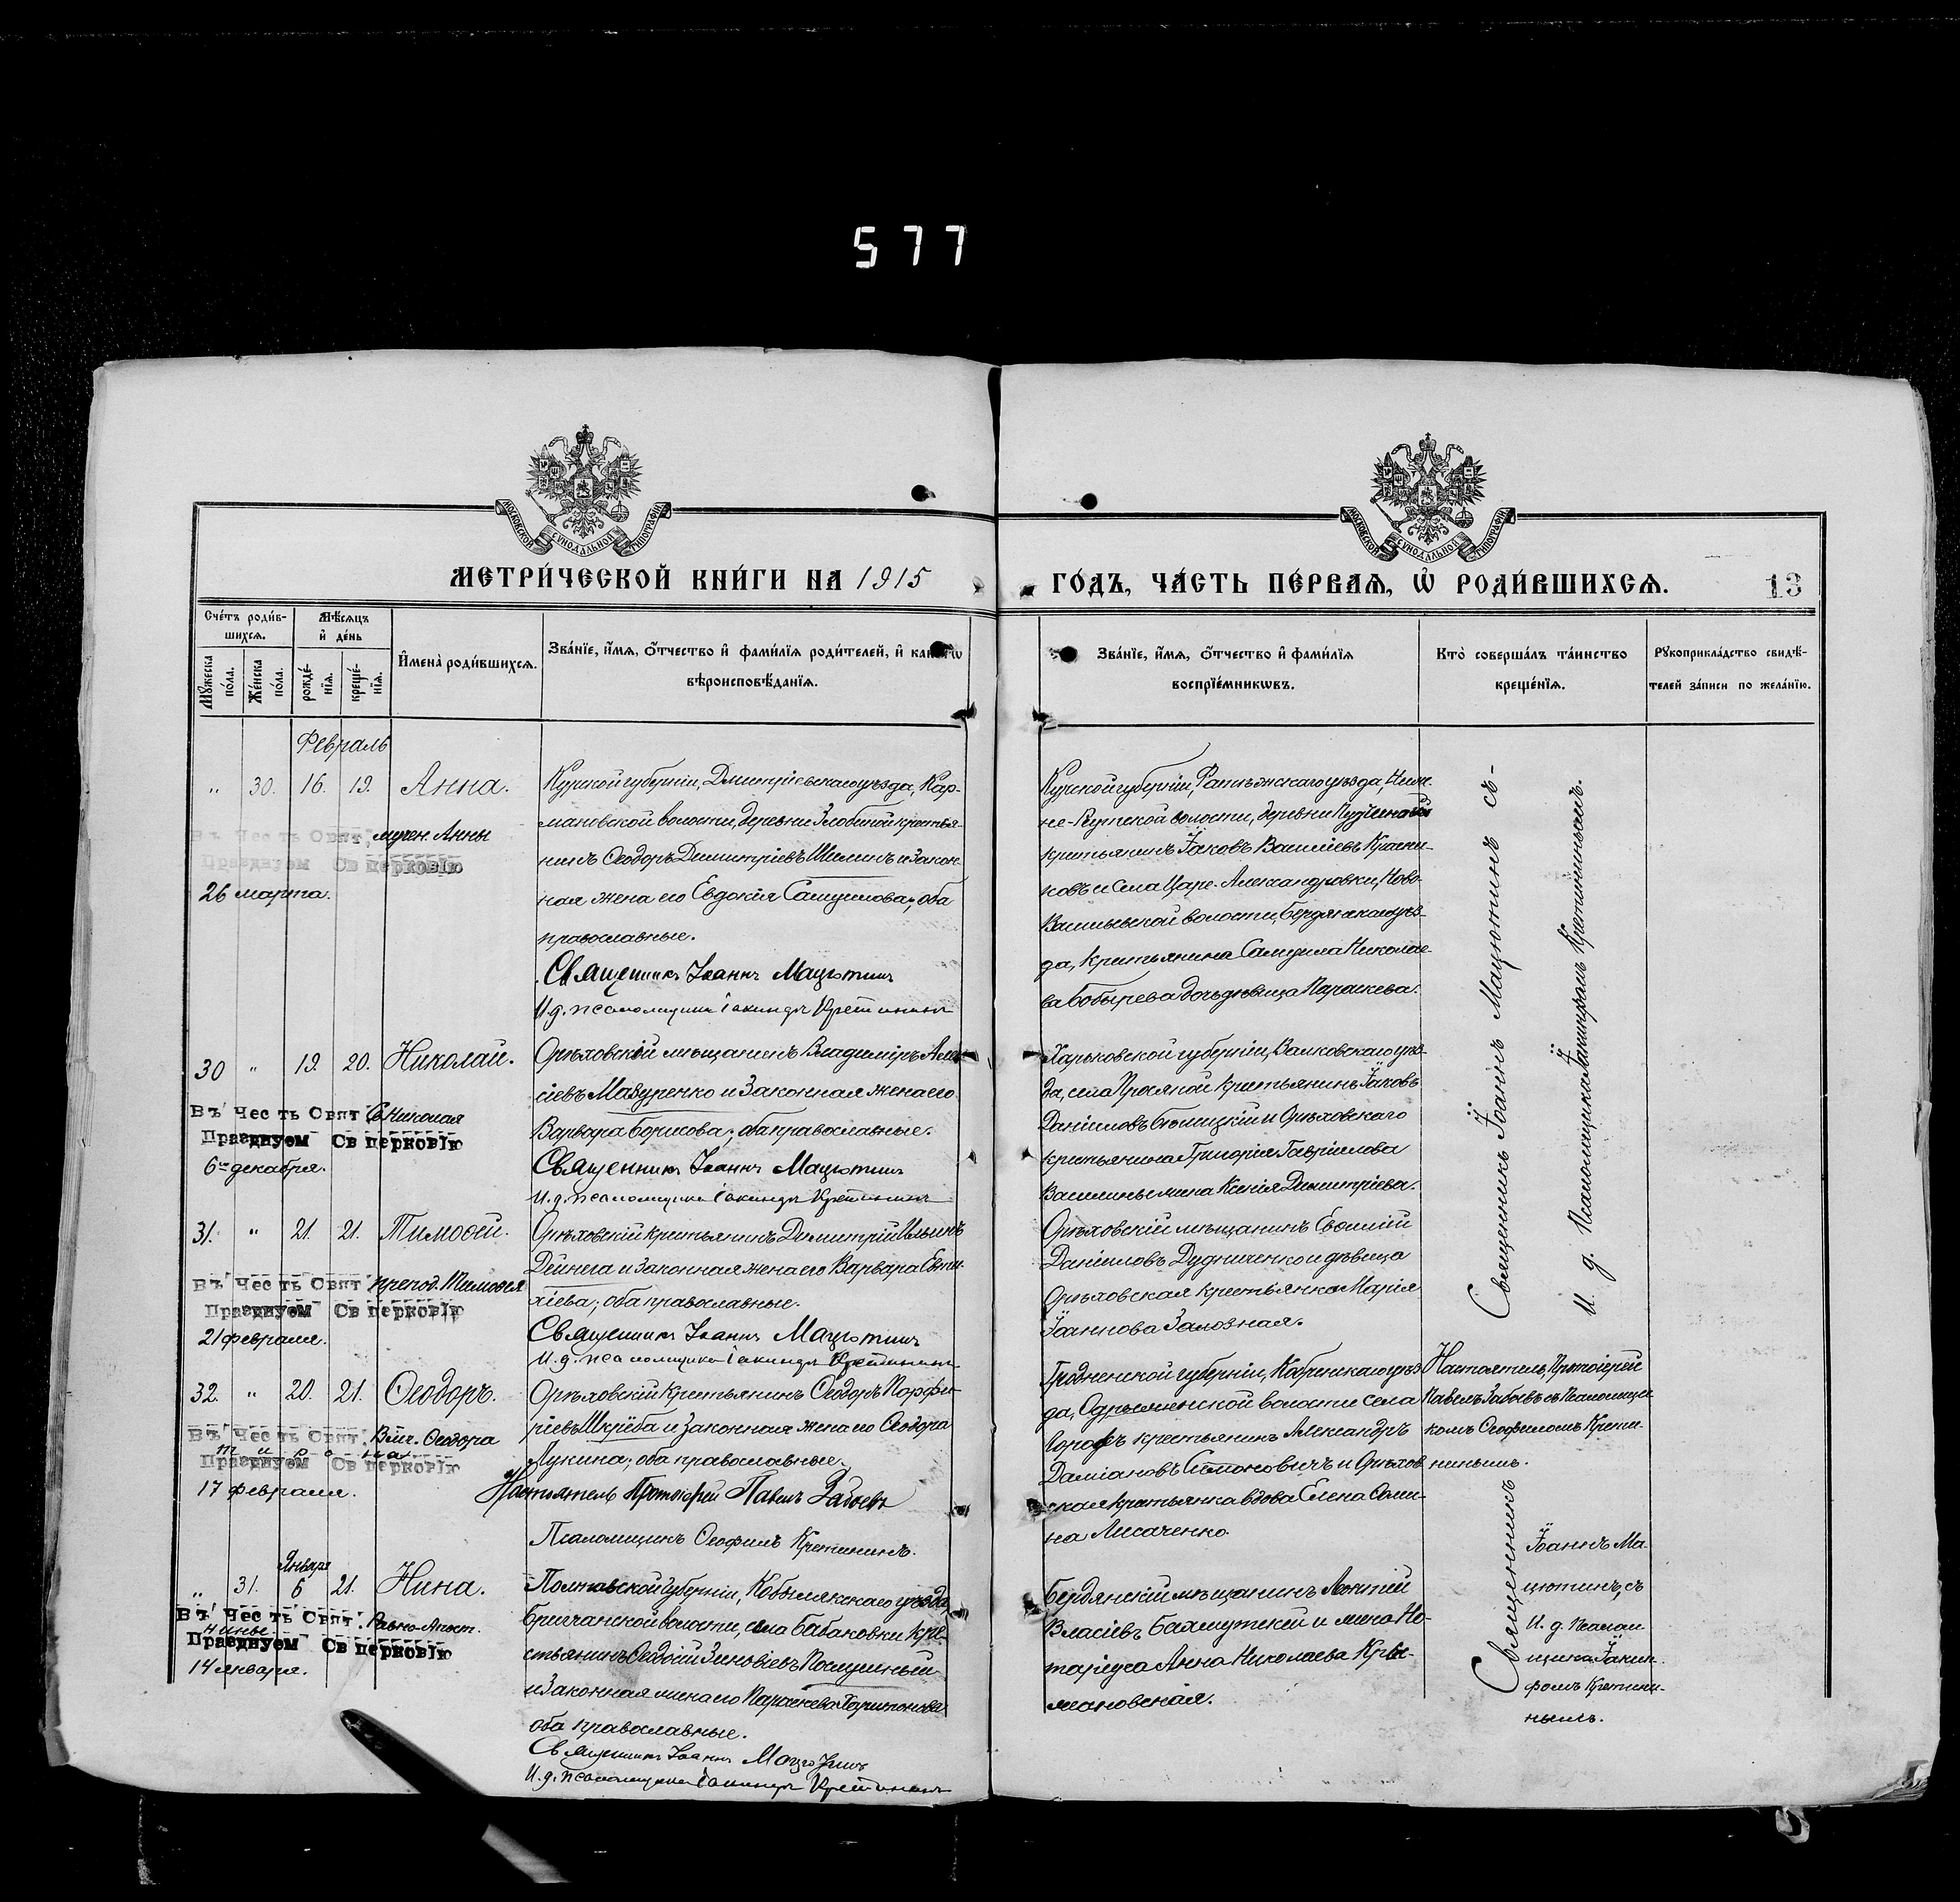 577
МОСКОВСКОЙ СѴНОДАЛЬНОЙ ТИПОГРАФІИ
МОСКОВСКОЙ СѴНОДАЛЬНОЙ ТИПОГРАФІИ
МЕТРИ́ЧЕСКОЙ КНИ́ГИ НА 1915
ГО́ДЪ, ЧА́СТЬ ПЕ́РВАѦ, Ѡ҆ РОДИ́ВШИХСѦ.
13
Сче́тъ роди́в-
шихсѧ.
Мꙋ́жеска
по́ла.
Же́нска
по́ла.
Мѣ́сѧцъ
и҆ де́нь
рожде́-
нїѧ.
креще́-
нїѧ.
И҆мена̀ роди́вшихсѧ.
Зва́нїе, и҆́мѧ, ѻ҆́тчество и҆ фами́лїѧ роди́телей, и҆
вѣроисповѣ́данїѧ.
Зва́нїе, и҆́мѧ, ѻ҆́тчество и҆ фами́лїѧ
воспрїе́мникѡвъ.
Кто̀ соверша́лъ та́инство
креще́нїѧ.
Рꙋкоприкла́дство свидѣ́-
телей за́писи по жела́нїю.
Февраль
" 30. 16. 19. Анна.
Въ Чес ть Свят. мучен. Анны
Празднуем Св церковію
26 марта.
Курской губерніи, Дмитріевскаго уѣзда, Кар-
мановской волости, деревни Злобиной крестья-
нинъ Ѳеодоръ Димитріевъ Шилинъ и закон-
ная жена его Евдокія Самуилова; оба
православные.
Священникъ Іоаннъ Мацютинъ
И. д. псаломщика Іакинфъ Кретининъ
Курской губерніи, уѣзда, Ниж-
не- волости, деревни
крестьянинъ Іаковъ Василіевъ Красни-
ковъ и села Царе-Александровки, Ново-
Васильевской волости, Бердянскаго уѣз-
да, крестьянина Самуила Николае-
ва Бобырева дочь дѣвица Параскева.
Священникъ Іоаннъ Мацютинъ съ
И. д. Псаломщика Іакинфомъ Кретининымъ.
30 " 19. 20. Николай.
Въ Чес ть Свят. Св. Николая
Празднуем Св церковію
6го декабря.
Орѣховскій мѣщанинъ Владиміръ Алек-
сіевъ Мазуренко и законная жена его
Варвара Борисова; оба православные.
Священникъ Іоаннъ Мацютинъ
И. д. псаломщика Іакинфъ Кретининъ
Харьковской губерніи, Валковскаго уѣз-
да, села Просяной крестьянинъ Іаковъ
Даніиловъ и Орѣховскаго
крестьянина Григорія Гавріилова
жена Ксенія Димитріева.
31. " 21. 21. Тимоѳей.
Въ Чес ть Свят. препод. Тимоѳея
Празднуем Св церковію
21 февраля.
Орѣховскій крестьянинъ Димитрій Ильинъ
Дейнега и законная жена его Варвара Евти-
хіева; оба православные.
Священникъ Іоаннъ Мацютинъ
И. д. псаломщика Іакинфъ Кретининъ
Орѣховскій мѣщанинъ Евѳимій
Даніиловъ Дудниченко и дѣвица
Орѣховская крестьянка Марія
Іоаннова Залозная.
32. " 20. 21. Ѳеодоръ.
Въ Чес ть Свят. Влмч. Ѳеодора
Тирона
Празднуем Св церковію
17 февраля.
Орѣховскій крестьянинъ Ѳеодоръ Порфи-
ріевъ Шкреба и законная жена его Ѳеодора
Лукина; оба православные.
Настоятель Протоіерей Павелъ Забоевъ
Псаломщикъ Ѳеофилъ Кретининъ.
Гродненской губерніи, Кобринскаго уѣз-
да, волости села
крестьянинъ Александръ
Даміановъ и Орѣхов-
ская крестьянка вдова Елена
на Лисаченко.
Настоятель, Протоіерей
Павелъ Забоевъ съ Псаломщи-
комъ Ѳеофиломъ Крети-
нинымъ.
Января
" 31. 6 21. Нина.
Въ Чес ть Свят. Равно-Апост.
Нины
Празднуем Св церковію
14 января.
Полтавской губерніи, Кобылякскаго уѣзда,
волости, села Бабаковки кре-
стьянинъ Зиновіевъ Послушный
и законная жена его Параскева Харитонова
оба православные.
Священникъ Іоаннъ Мацютинъ
И. д. псаломщика Іакинфъ Кретининъ
Бердянскій мѣщанинъ
Власіевъ Бахмутскій и жена Но-
таріуса Анна Николаева
Священникъ Іоаннъ Ма-
цютинъ, съ
И. д. Псалом-
щика Іакин-
фомъ Кретини-
нымъ.